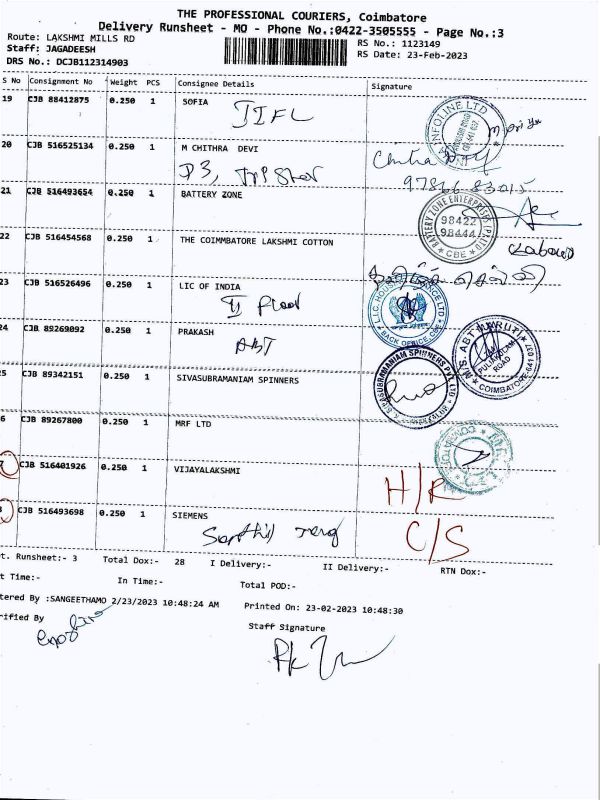 THE PROFESSIONAL COURIERS, Coimbatore
Delivery Runsheet - MO - Phone No.:0422-3505555 - Page No.:3
Route: LAKSHMI MILLS RD
RS No.: 1123149
Staff: JAGADEESH
RS Date: 23-Feb-2023
DRS No.: DCJB112314903
S No Consignment No Weight PCS Consignee Details Signature
19 CJB 88412875 0.250 1 SOFIA
IIFL
INFOLINE LTD
20 CJB 516525134 0.250 1 M CHITHRA DEVI
Chithra
21 CJB 516493654 0.250 1 BATTERY ZONE
BATTERY ZONE ENTERPRISES (P) LTD
98422
98444
CBE
22 CJB 516454568 0.250 1 THE COIMMBATORE LAKSHMI COTTON
23 CJB 516526496 0.250 1 LIC OF INDIA
II Floor
BACK OFFICE, CBE
24 CJB 89269092 0.250 1 PRAKASH
ABT
M/S. ABT MARUTI
PULIAKULAM
ROAD
COIMBATORE-641 037
25 CJB 89342151 0.250 1 SIVASUBRAMANIAM SPINNERS
SIVASUBRAMANIAM SPINNERS PVT. LTD
6 CJB 89267800 0.250 1 MRF LTD
7 CJB 516401926 0.250 1 VIJAYALAKSHMI
H/R
8 CJB 516493698 0.250 1 SIEMENS
C/S
t. Runsheet:- 3 Total Dox:- 28 I Delivery:- II Delivery:- RTN Dox:-
t Time:- In Time:- Total POD:-
tered By :SANGEETHAMO 2/23/2023 10:48:24 AM Printed On: 23-02-2023 10:48:30
rified By
Staff Signature